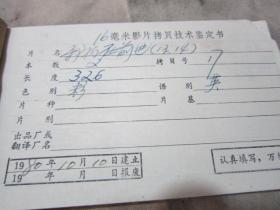 16毫米影片拷贝技术鉴定书
片名 (13,14)
本数 2 拷贝号 17
长度 326
色别 彩 语别 英
片种 片基
片别
出品厂或
翻译厂名
1980年10月10日建立
19 年 月 日报废
认真填写，万